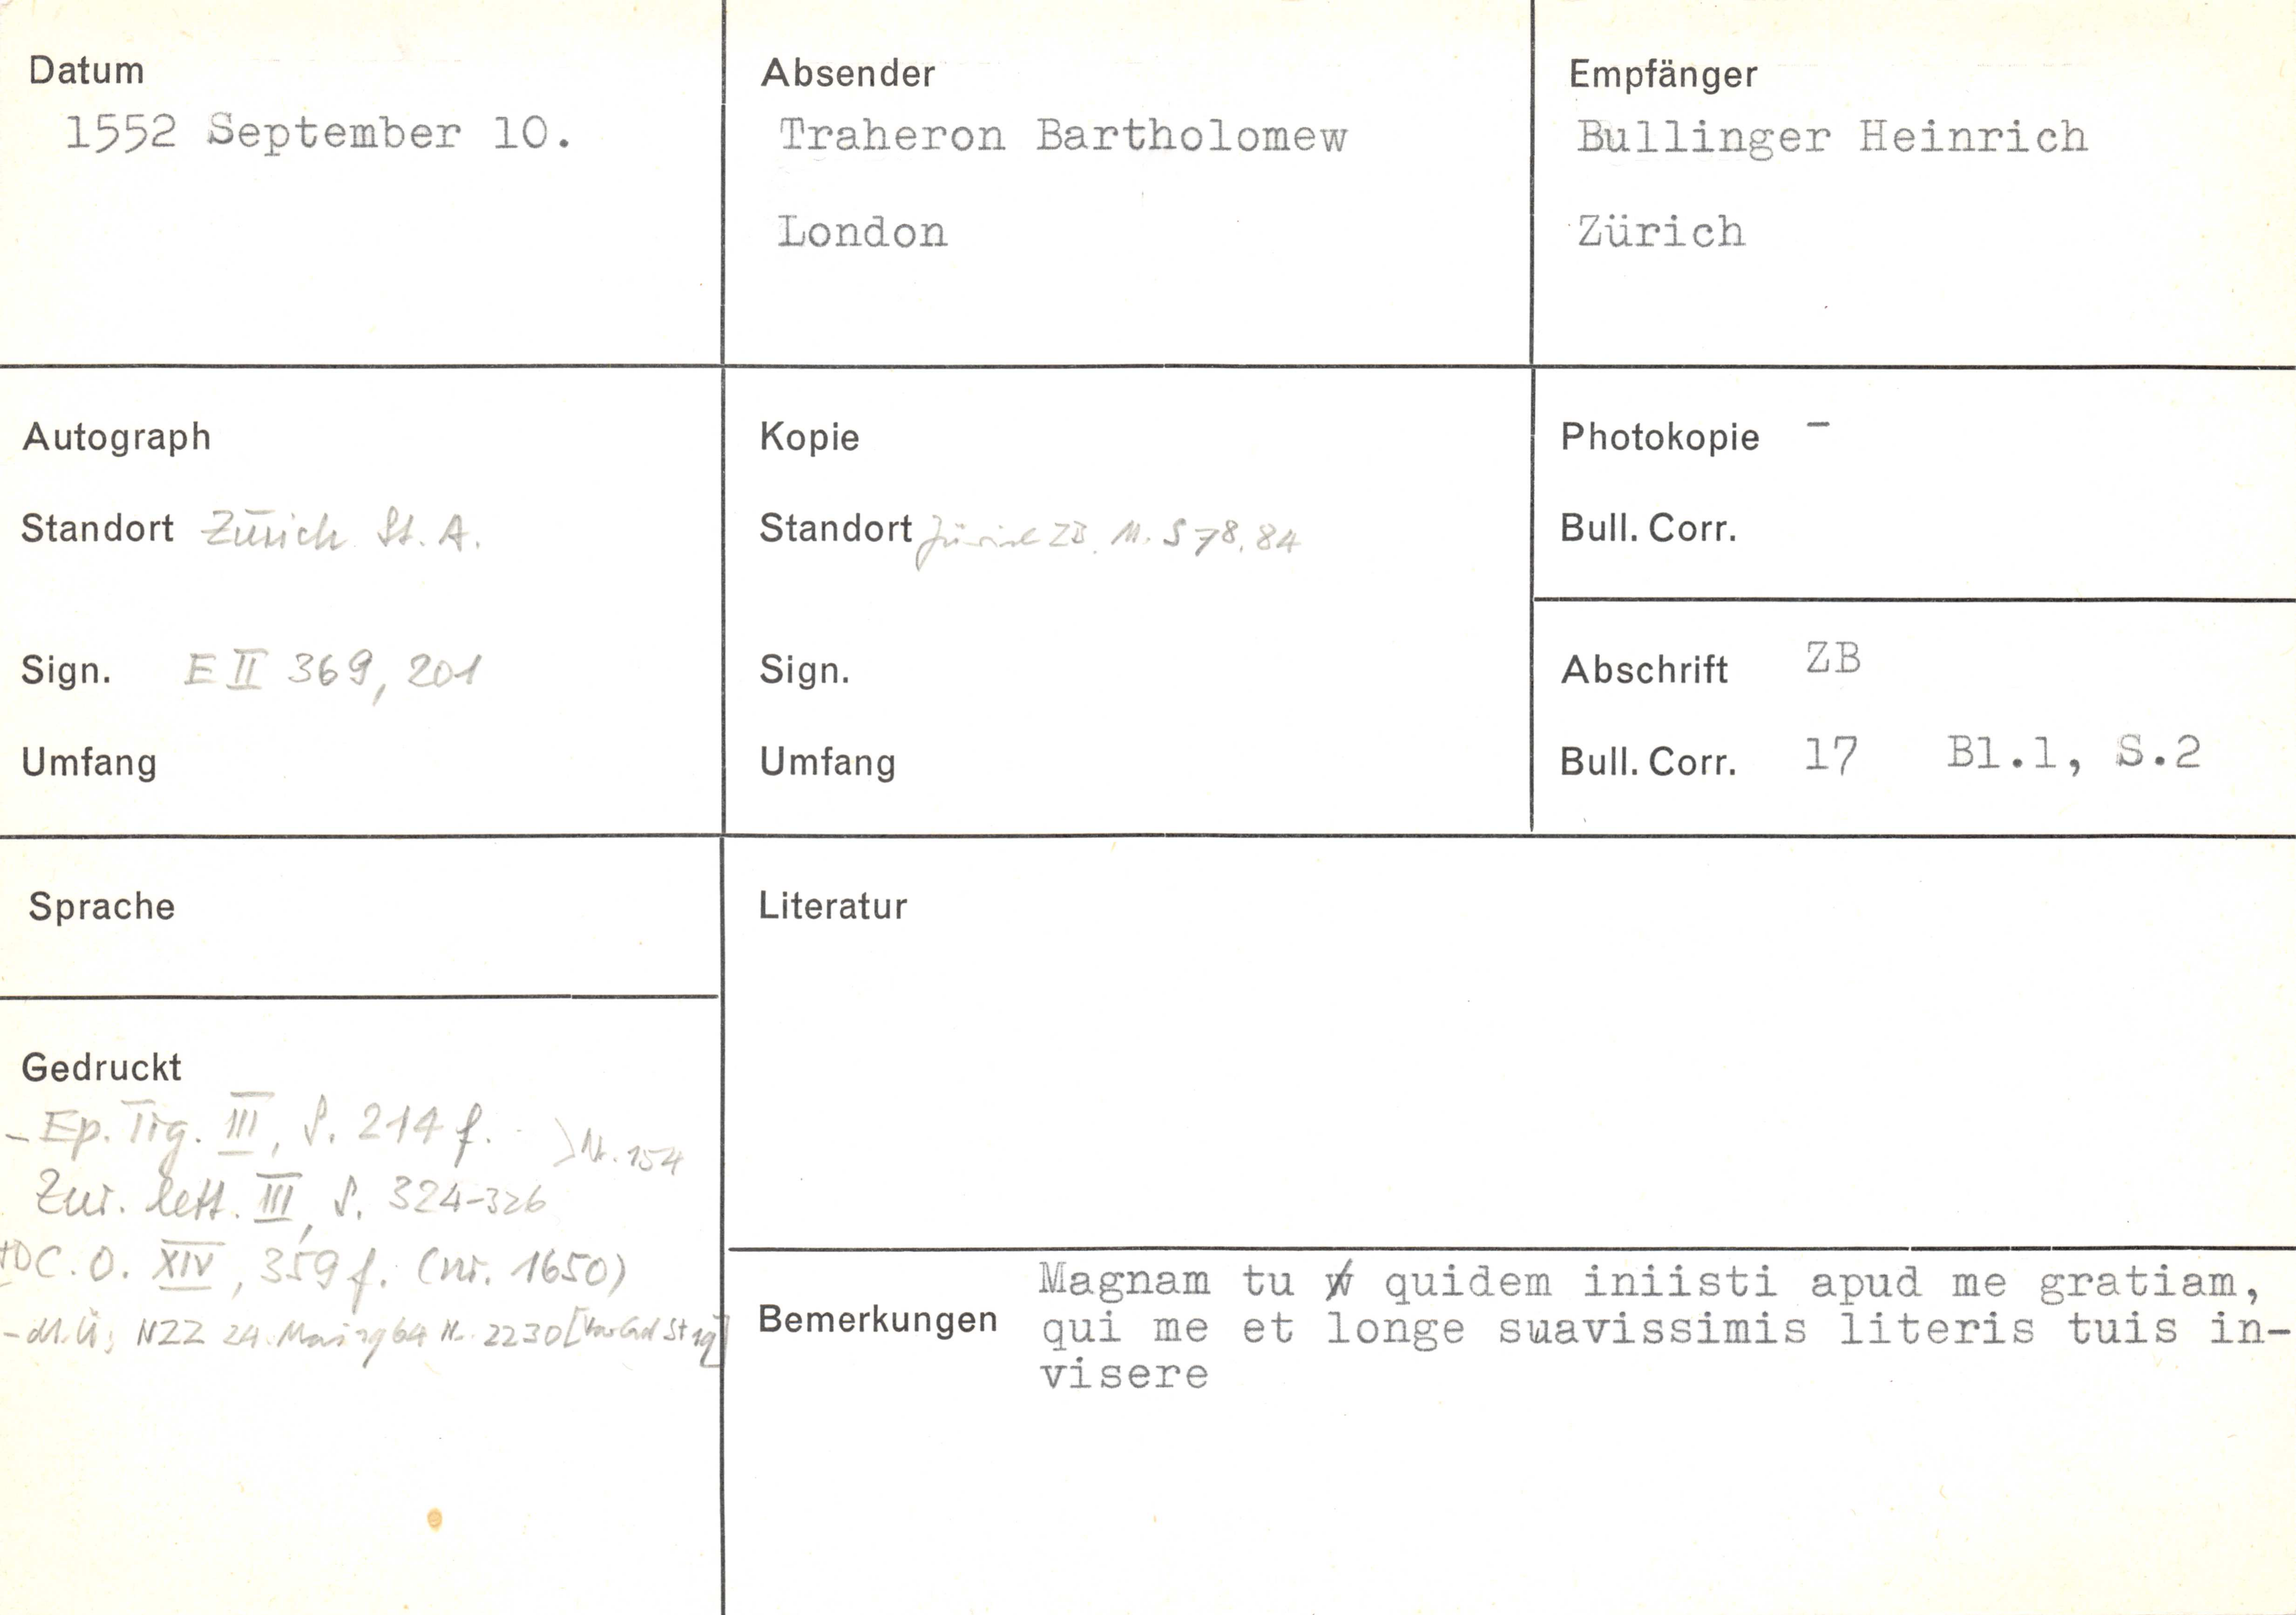 Datum
1552 September 10.
Absender
Traheron Bartholomew
London
Empfänger
Bullinger Heinrich
Zürich
Autograph
Standort Zürich St. A.
Sign. E II 369, 201
Umfang
Kopie
Standort Zürich ZB. M. S 78, 84
Sign.
Umfang
Photokopie –
Bull. Corr.
Abschrift ZB
Bull. Corr. 17 Bl.1, S.2
Sprache
Literatur
Gedruckt
- Ep. Tig. III, S. 214 f. > Nr. 154
Zur. lett. III, S. 324-326
C. O. XIV, 359 f. (nr. 1650)
- dt. Ü; NZZ 24. Mai 1964 Nr. 2230
Bemerkungen
Magnam tu quidem iniisti apud me gratiam,
qui me et longe suavissimis literis tuis in-
visere